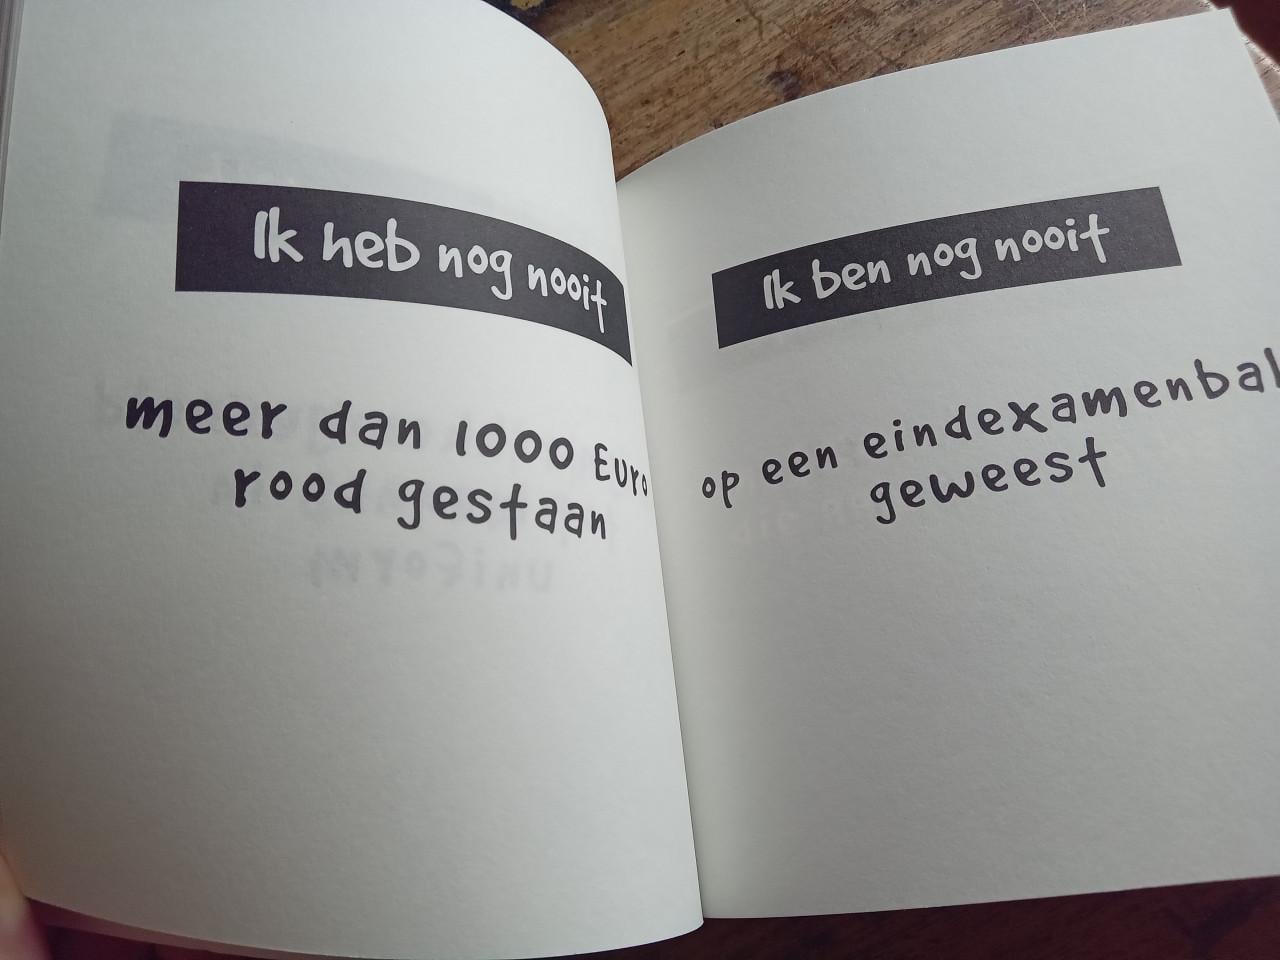 Ik heb nog nooit
meer dan 1000 Euro
rood gestaan
Ik ben nog nooit
op een eindexamenbal
geweest
uniform